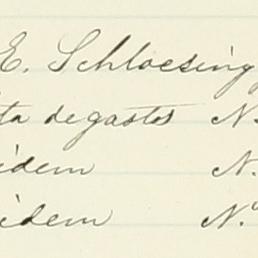 E. Schloesing
ta de gastos N.
idem N.
idem N.º